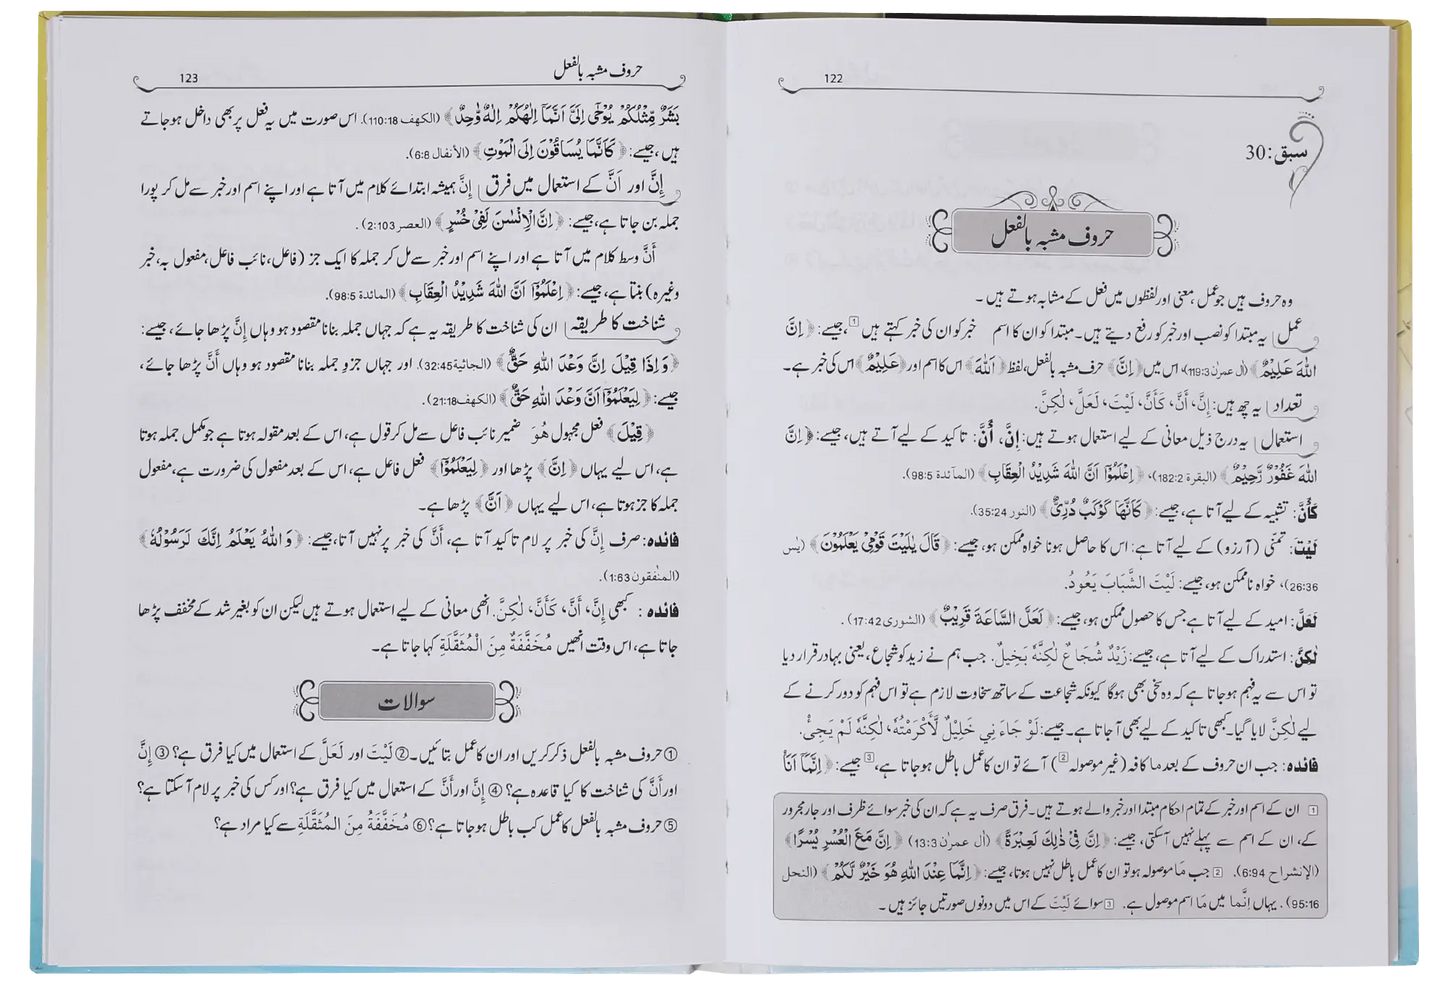 122
سبق:30
حروف مشبہ بالفعل
وہ حروف ہیں جو عمل، معنی اور لفظوں میں فعل کے مشابہ ہوتے ہیں۔
عمل یہ مبتدا کو نصب اور خبر کو رفع دیتے ہیں۔ مبتدا کو ان کا اسم خبر کو ان کی خبر کہتے ہیں 1، جیسے: ﴿اِنَّ
اللّٰهَ عَلِيْمٌ﴾ (اٰل عمرٰن 119:3)، اس میں ﴿اِنَّ﴾ حرف مشبہ بالفعل، لفظ ﴿اَللّٰهَ﴾ اس کا اسم اور ﴿عَلِيْمٌ﴾ اس کی خبر ہے۔
تعداد یہ چھ ہیں: إِنَّ، أَنَّ، كَأَنَّ، لَيْتَ، لَعَلَّ، لٰكِنَّ.
استعمال یہ درج ذیل معانی کے لیے استعمال ہوتے ہیں: إِنَّ، أَنَّ: تاکید کے لیے آتے ہیں، جیسے: ﴿اِنَّ
اللّٰهَ غَفُوْرٌ رَّحِيْمٌ﴾ (البقرة 182:2)، ﴿اِعْلَمُوْٓا اَنَّ اللّٰهَ شَدِيْدُ الْعِقَابِ﴾ (المآئدة 98:5).
كَأَنَّ: تشبیہ کے لیے آتا ہے، جیسے: ﴿كَاَنَّهَا كَوْكَبٌ دُرِّيٌّ﴾ (النور 35:24).
لَيْتَ: تمنّی (آرزو) کے لیے آتا ہے: اس کا حاصل ہونا خواہ ممکن ہو، جیسے: ﴿قَالَ يٰلَيْتَ قَوْمِيْ يَعْلَمُوْنَ﴾ (یٰس
26:36)، خواہ ناممکن ہو، جیسے: لَيْتَ الشَّبَابَ يَعُودُ.
لَعَلَّ: امید کے لیے آتا ہے جس کا حصول ممکن ہو، جیسے: ﴿لَعَلَّ السَّاعَةَ قَرِيْبٌ﴾ (الشورى 17:42).
لٰكِنَّ: استدراک کے لیے آتا ہے، جیسے: زَيْدٌ شُجَاعٌ لٰكِنَّهُ بَخِيلٌ. جب ہم نے زید کو شجاع، یعنی بہادر قرار دیا
تو اس سے یہ فہم ہو جاتا ہے کہ وہ سخی بھی ہوگا کیونکہ شجاعت کے ساتھ سخاوت لازم ہے تو اس فہم کو دور کرنے کے
لیے لٰكِنَّ لایا گیا۔ کبھی تاکید کے لیے بھی آ جاتا ہے۔ جیسے: لَوْ جَاءَنِي خَلِيلٌ لَّأَكْرَمْتُهُ، لٰكِنَّهُ لَمْ يَجِئْ.
فائدہ: جب ان حروف کے بعد ما کافہ (غیر موصولہ 2) آئے تو ان کا عمل باطل ہو جاتا ہے، 3 جیسے: ﴿اِنَّمَآ اَنَا۠
1 ان کے اسم اور خبر کے تمام احکام مبتدا اور خبر والے ہوتے ہیں۔ فرق صرف یہ ہے کہ ان کی خبر سوائے ظرف اور جار مجرور
کے، ان کے اسم سے پہلے نہیں آسکتی، جیسے: ﴿اِنَّ فِيْ ذٰلِكَ لَعِبْرَةً﴾ (اٰل عمرٰن 13:3) ﴿اِنَّ مَعَ الْعُسْرِ يُسْرًا﴾
(الإنشراح 6:94). 2 جب مَا موصولہ ہو تو ان کا عمل باطل نہیں ہوتا، جیسے: ﴿اِنَّمَا عِنْدَ اللّٰهِ هُوَ خَيْرٌ لَّكُمْ﴾ (النحل
95:16). یہاں اِنَّما میں مَا اسم موصول ہے۔ 3 سوائے لَيْتَ کے اس میں دونوں صورتیں جائز ہیں۔
حروف مشبہ بالفعل
123
بَشَرٌ مِّثْلُكُمْ يُوْحٰٓى اِلَيَّ اَنَّمَآ اِلٰهُكُمْ اِلٰهٌ وَّاحِدٌ﴾ (الكهف 110:18). اس صورت میں یہ فعل پر بھی داخل ہو جاتے
ہیں، جیسے: ﴿كَاَنَّمَا يُسَاقُوْنَ اِلَى الْمَوْتِ﴾ (الأنفال 6:8).
إِنَّ اور أَنَّ کے استعمال میں فرق إِنَّ ہمیشہ ابتدائے کلام میں آتا ہے اور اپنے اسم اور خبر سے مل کر پورا
جملہ بن جاتا ہے، جیسے: ﴿اِنَّ الْاِنْسٰنَ لَفِيْ خُسْرٍ﴾ (العصر 2:103).
أَنَّ وسط کلام میں آتا ہے اور اپنے اسم اور خبر سے مل کر جملہ کا ایک جز (فاعل، نائب فاعل، مفعول بہ، خبر
وغیرہ) بنتا ہے، جیسے: ﴿اِعْلَمُوْٓا اَنَّ اللّٰهَ شَدِيْدُ الْعِقَابِ﴾ (المائدة 98:5).
شناخت کا طریقہ ان کی شناخت کا طریقہ یہ ہے کہ جہاں جملہ بنانا مقصود ہو وہاں إِنَّ پڑھا جائے، جیسے:
﴿وَاِذَا قِيْلَ اِنَّ وَعْدَ اللّٰهِ حَقٌّ﴾ (الجاثية 32:45). اور جہاں جزوِ جملہ بنانا مقصود ہو وہاں أَنَّ پڑھا جائے،
جیسے: ﴿لِيَعْلَمُوْٓا اَنَّ وَعْدَ اللّٰهِ حَقٌّ﴾ (الكهف 21:18).
﴿قِيْلَ﴾ فعل مجہول هُوَ ضمیر نائب فاعل سے مل کر قول ہے، اس کے بعد مقولہ ہوتا ہے جو مکمل جملہ ہوتا
ہے، اس لیے یہاں ﴿اِنَّ﴾ پڑھا اور ﴿لِيَعْلَمُوْٓا﴾ فعل فاعل ہے، اس کے بعد مفعول کی ضرورت ہے، مفعول
جملہ کا جز ہوتا ہے، اس لیے یہاں ﴿اَنَّ﴾ پڑھا ہے۔
فائدہ: صرف إِنَّ کی خبر پر لام تاکید آتا ہے، أَنَّ کی خبر پر نہیں آتا، جیسے: ﴿وَاللّٰهُ يَعْلَمُ اِنَّكَ لَرَسُوْلُهٗ﴾
(المنٰفقون 1:63).
فائدہ: کبھی إِنَّ، أَنَّ، كَأَنَّ، لٰكِنَّ. انھی معانی کے لیے استعمال ہوتے ہیں لیکن ان کو بغیر شد کے مخفف پڑھا
جاتا ہے، اس وقت انھیں مُخَفَّفَةٌ مِنَ الْمُثَقَّلَةِ کہا جاتا ہے۔
سوالات
① حروف مشبہ بالفعل ذکر کریں اور ان کا عمل بتائیں۔ ② لَيْتَ اور لَعَلَّ کے استعمال میں کیا فرق ہے؟ ③ إِنَّ
اور أَنَّ کی شناخت کا کیا قاعدہ ہے؟ ④ إِنَّ اور أَنَّ کے استعمال میں کیا فرق ہے؟ اور کس کی خبر پر لام آسکتا ہے؟
⑤ حروف مشبہ بالفعل کا عمل کب باطل ہو جاتا ہے؟ ⑥ مُخَفَّفَةٌ مِنَ الْمُثَقَّلَةِ سے کیا مراد ہے؟